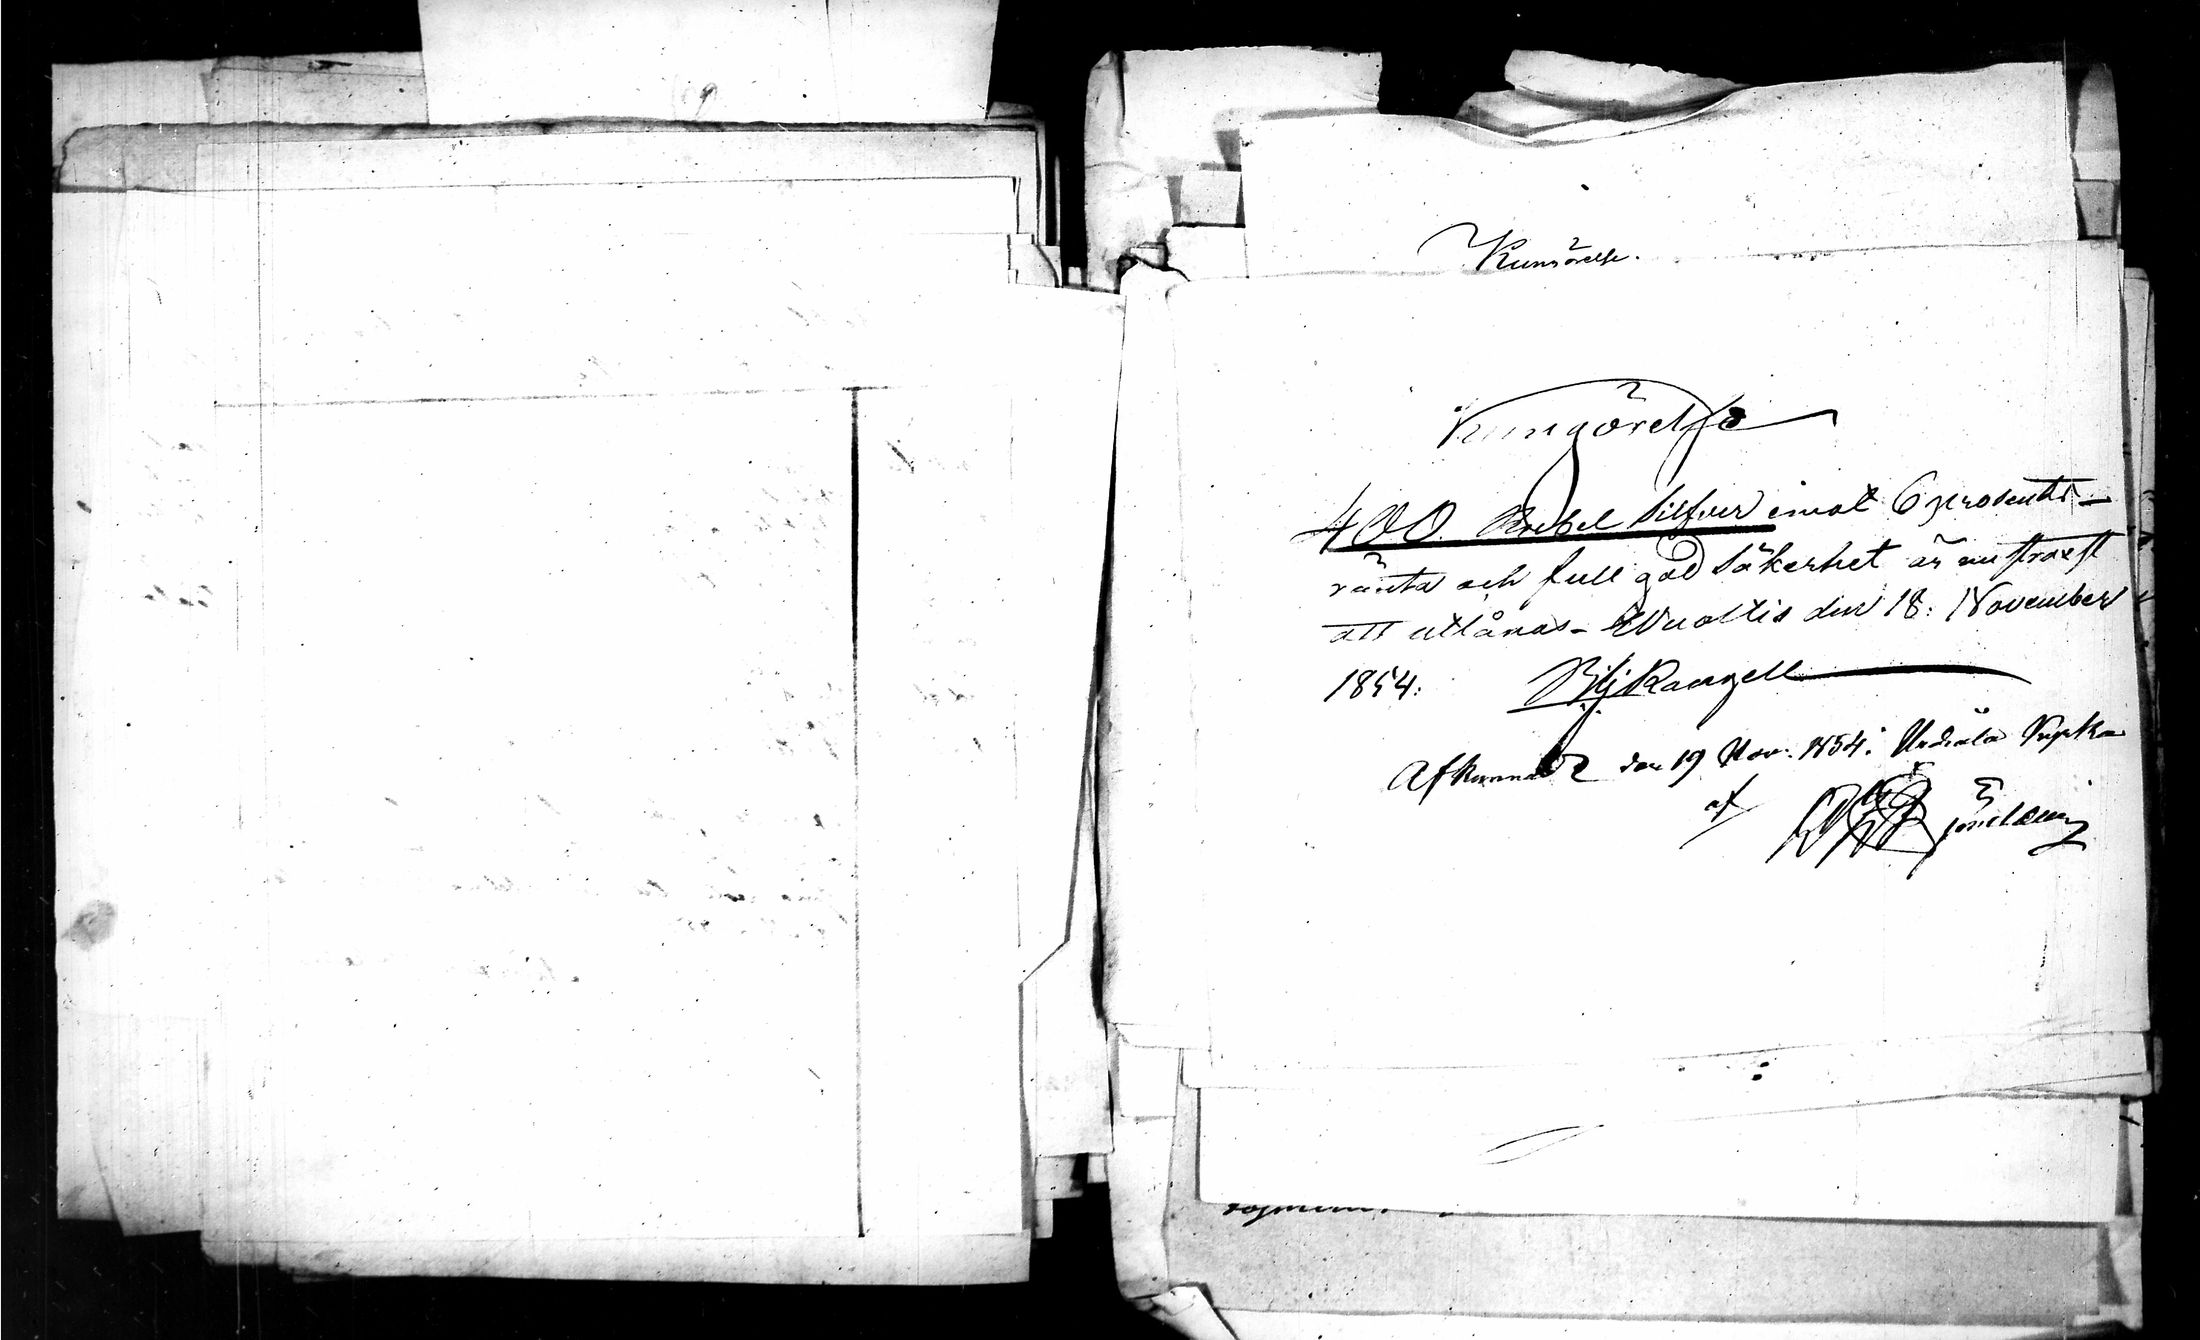 Kunsörelse.
Kungörelse
400 Rubel Silfver emot 6 prosents
ränta och full god säkerhet är nu straxst
att utlånas - Wuoltis den 18: November
1854: Rangell
Afkunnad den 19 Nov: 1854: Urdiala kyrka
af